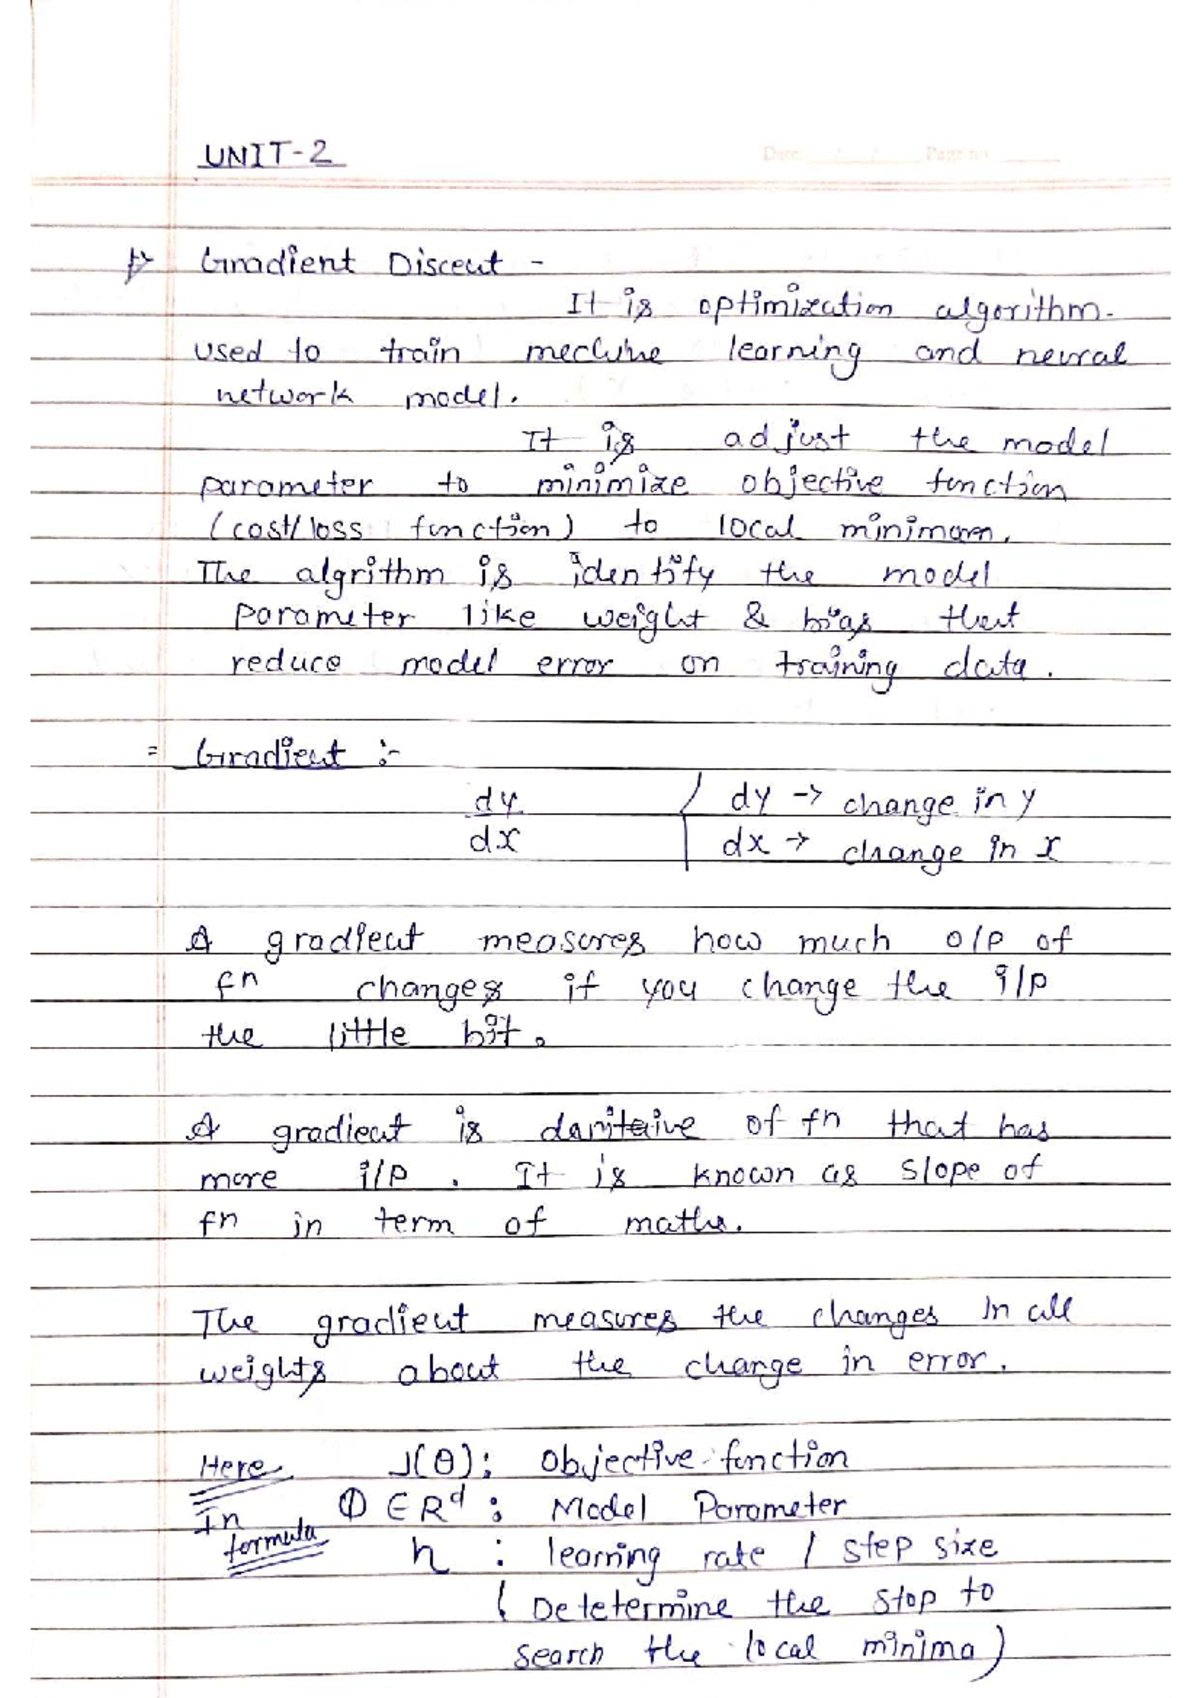 UNIT-2
Date Page no
Gradient Discent -
It is optimization algorithm.
used to train mechine learning and neural
network model.
It is adjust the model
parameter to minimize objective function
(cost/loss function) to local minimum.
The algrithm is identify the model
parameter like weight & bias that
reduce model error on training data.
= Gradient :-
dy / dy -> change in y
dx | dx -> change in x
A gradient measures how much o/p of
fn changes if you change the i/p
the little bit.
A gradient is daritaive of fn that has
more i/p. It is known as slope of
fn in term of maths.
The gradient measures the changes in all
weights about the change in error.
Here J(θ): Objective function
In formula Φ ∈ R^d : Model Parameter
η : learning rate / step size
( Detetermine the stop to
search the local minima)